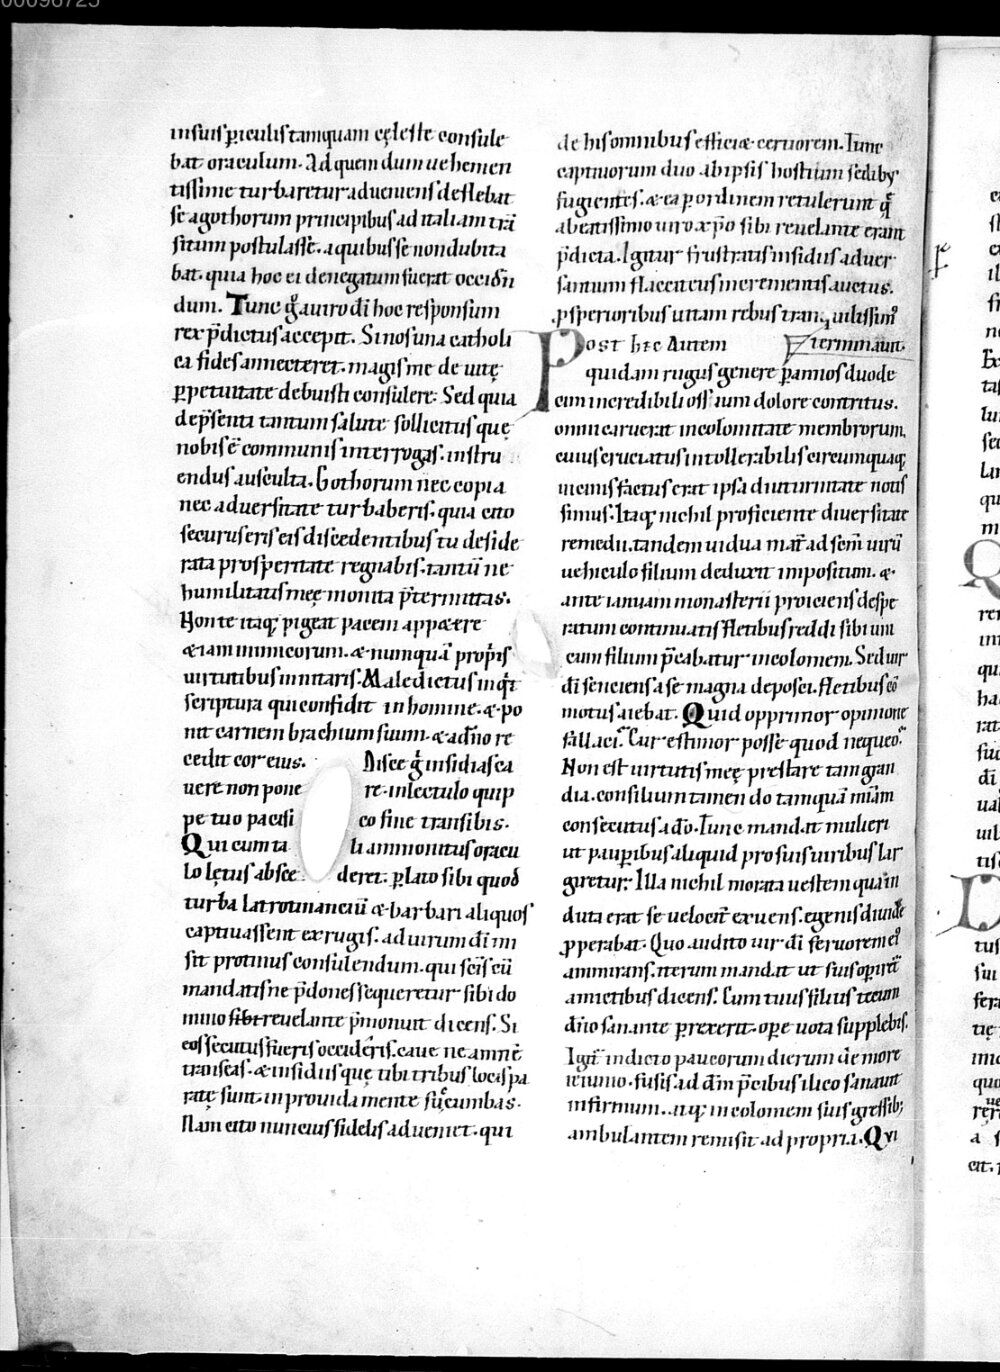 00096725
in suis ꝑiculis tamquam cęleste consule
bat oraculum. Ad quem dum uehemen
tissime turbaretur adueniens deflebat
se a gothorum principibus ad italiam trā
situm postulasse. a quibus se non dubita
bat. quia hoc ei denegatum fuerat occidn̄
dum. Tunc gͦ a uiro dī hoc responsum
rex p̄dictus accepit. Si nos una catholi
ca fides annecteret. magis me de uitę
ꝑpetuitate debuisti consulere. Sed quia
de p̄senti tantum salute sollicitus quę
nobis ē communis interrogas. instru
endus ausculta. Gothorum nec copia
nec aduersitate turbaberis. quia cito
securus eris eis discedentibus tu deside
rata prosperitate regnabis. tantū ne
humilitatis meę monita p̄termittas.
Non te itaq; pigeat pacem appetere
&iam inimicorum. & numquā propͥis
uirtutibus innitaris. Maledictus inqͥt
scriptura qui confidit in homine. & po
nit carnem brachium suum. & a dn̄o re
cedit cor eius. Disce gͦ insidias ca
uere non pone re. in lectulo quip
pe tuo pacifi co fine transibis.
Qui cum ta li ammonitus oracu
lo lętus absce deret. ꝑlato sibi quod
turba latrotinanciū & barbari aliquos
captiuassent ex rugis. ad uirum dī mi
sit protinus consulendum. qui scīs eū
mandatis ne p̄dones sequeretur sibi do
mino sibi reuelante p̄monuit dicens. Si
eos secutus fueris occideris. caue ne amnē
transeas. & insidiis quę tibi tribus locis pa
ratę sunt. inprouida mente succumbas.
Nam cito nuncius fidelis adueniet. qui
de his omnibus efficiet certiorem. Tunc
captiuorum duo ab ipsis hostium sedib;
fugientes. & ea ꝑ ordinem retulerunt quę
a beatissimo uiro xp̄o sibi reuelante erant
p̄dicta. Igitur frustratis insidiis aduer
santium flacciteus incrementis auctus.
ꝓsperioribus uitam rebus tranquilissimꝰ
Post hec Autem terminauit.
quidam rugus genere ꝑ annos duode
cim incredibili ossium dolore contritus.
omni caruerat incolomitate membrorum.
cuius cruciatus intollerabilis circumquaq;
uicinis factus erat ipsa diuturnitate notis
simus. Itaq; nichil proficiente diuersitate
remedii. tandem uidua mat̄ ad scm̄ uirū
uehiculo filium deduxit impositum. &
ante ianuam monasterii proiciens despe
ratum continuatis fletibus reddi sibi uni
cum filium p̄cabatur incolomem. Sed uir
dī senciens a se magna deposci. fletibus cō
motus aiebat. Quid opprimor opinione
fallaci. Cur estimor posse quod nequeo.
Non est uirtutis meę prestare tam gran
dia. consilium tamen do tamquā mīam
consecutus a dō. Tunc mandat mulieri
ut pauꝑibus aliquid pro suis uiribus lar
giretur. Illa nichil morata uestem qua in
duta erat se uelocit̄ exuens. egenis diuide
ꝓperabat. Quo audito uir dī feruorem eiꝰ
ammirans. iterum mandat ut suis oꝑiret̄
amictibus dicens. Cum tuus filius tecum
dn̄o sanante ꝑrexerit. oꝑe uota supplebis.
Igit̄ indicto paucorum dierum de more
ieiunio. fusis ad dm̄ p̄cibus ilico sanauit
infirmum. atq; incolomem suis gressib;
ambulantem remisit ad propria. Qui